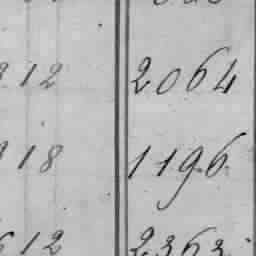 12 2064
18 1196
12 2363